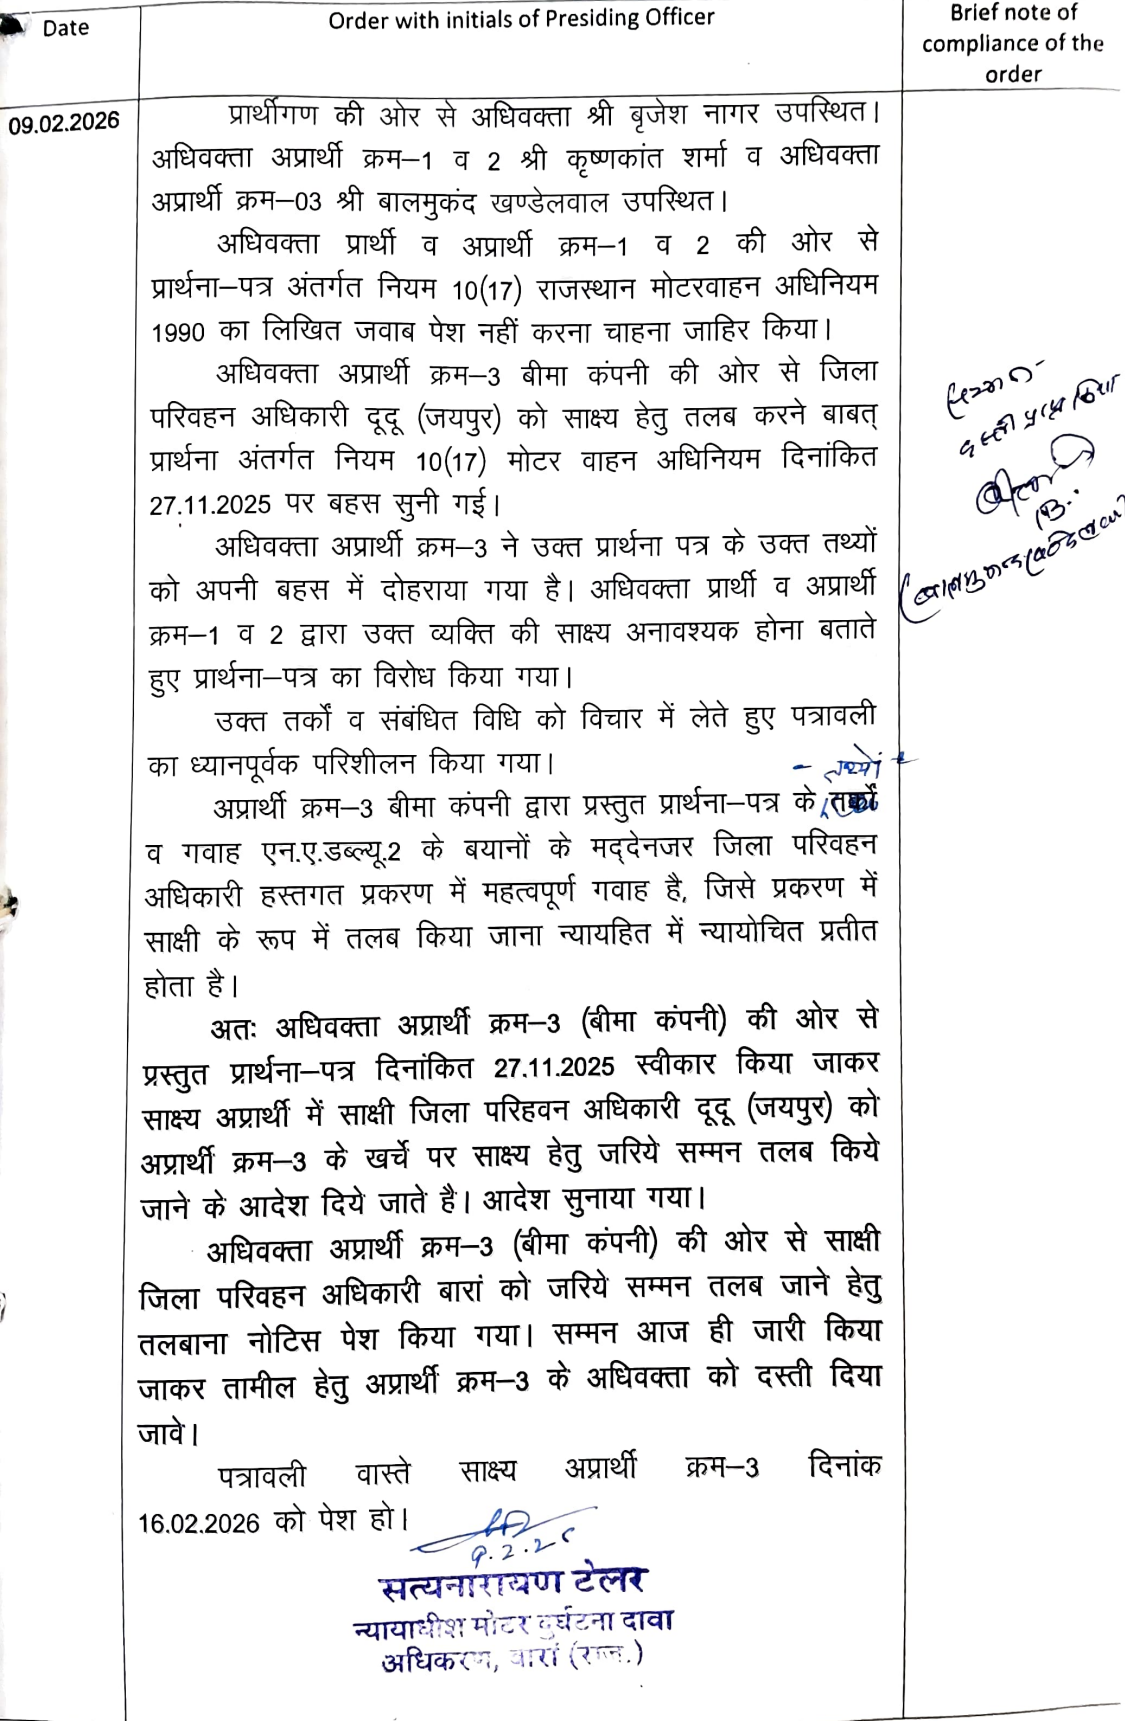 Date
Order with initials of Presiding Officer
Brief note of
compliance of the
order
09.02.2026
प्रार्थीगण की ओर से अधिवक्ता श्री बृजेश नागर उपस्थित।
अधिवक्ता अप्रार्थी क्रम–1 व 2 श्री कृष्णकांत शर्मा व अधिवक्ता
अप्रार्थी क्रम–03 श्री बालमुकंद खण्डेलवाल उपस्थित।
अधिवक्ता प्रार्थी व अप्रार्थी क्रम–1 व 2 की ओर से
प्रार्थना–पत्र अंतर्गत नियम 10(17) राजस्थान मोटरवाहन अधिनियम
1990 का लिखित जवाब पेश नहीं करना चाहना जाहिर किया।
अधिवक्ता अप्रार्थी क्रम–3 बीमा कंपनी की ओर से जिला
परिवहन अधिकारी दूदू (जयपुर) को साक्ष्य हेतु तलब करने बाबत्
प्रार्थना अंतर्गत नियम 10(17) मोटर वाहन अधिनियम दिनांकित
27.11.2025 पर बहस सुनी गई।
अधिवक्ता अप्रार्थी क्रम–3 ने उक्त प्रार्थना पत्र के उक्त तथ्यों
को अपनी बहस में दोहराया गया है। अधिवक्ता प्रार्थी व अप्रार्थी
क्रम–1 व 2 द्वारा उक्त व्यक्ति की साक्ष्य अनावश्यक होना बताते
हुए प्रार्थना–पत्र का विरोध किया गया।
उक्त तर्कों व संबंधित विधि को विचार में लेते हुए पत्रावली
का ध्यानपूर्वक परिशीलन किया गया।
तथ्यों
अप्रार्थी क्रम–3 बीमा कंपनी द्वारा प्रस्तुत प्रार्थना–पत्र के तर्कों
व गवाह एन.ए.डब्ल्यू.2 के बयानों के मद्देनजर जिला परिवहन
अधिकारी हस्तगत प्रकरण में महत्वपूर्ण गवाह है, जिसे प्रकरण में
साक्षी के रूप में तलब किया जाना न्यायहित में न्यायोचित प्रतीत
होता है।
अतः अधिवक्ता अप्रार्थी क्रम–3 (बीमा कंपनी) की ओर से
प्रस्तुत प्रार्थना–पत्र दिनांकित 27.11.2025 स्वीकार किया जाकर
साक्ष्य अप्रार्थी में साक्षी जिला परिहवन अधिकारी दूदू (जयपुर) को
अप्रार्थी क्रम–3 के खर्चे पर साक्ष्य हेतु जरिये सम्मन तलब किये
जाने के आदेश दिये जाते है। आदेश सुनाया गया।
अधिवक्ता अप्रार्थी क्रम–3 (बीमा कंपनी) की ओर से साक्षी
जिला परिवहन अधिकारी बारां को जरिये सम्मन तलब जाने हेतु
तलबाना नोटिस पेश किया गया। सम्मन आज ही जारी किया
जाकर तामील हेतु अप्रार्थी क्रम–3 के अधिवक्ता को दस्ती दिया
जावे।
पत्रावली वास्ते साक्ष्य अप्रार्थी क्रम–3 दिनांक
16.02.2026 को पेश हो।
9.2.26
सत्यनारायण टेलर
न्यायाधीश मोटर दुर्घटना दावा
अधिकरण, बारां (राज.)
सम्मन
दस्ती प्राप्त किया
(बालमुकन्द खण्डेलवाल)